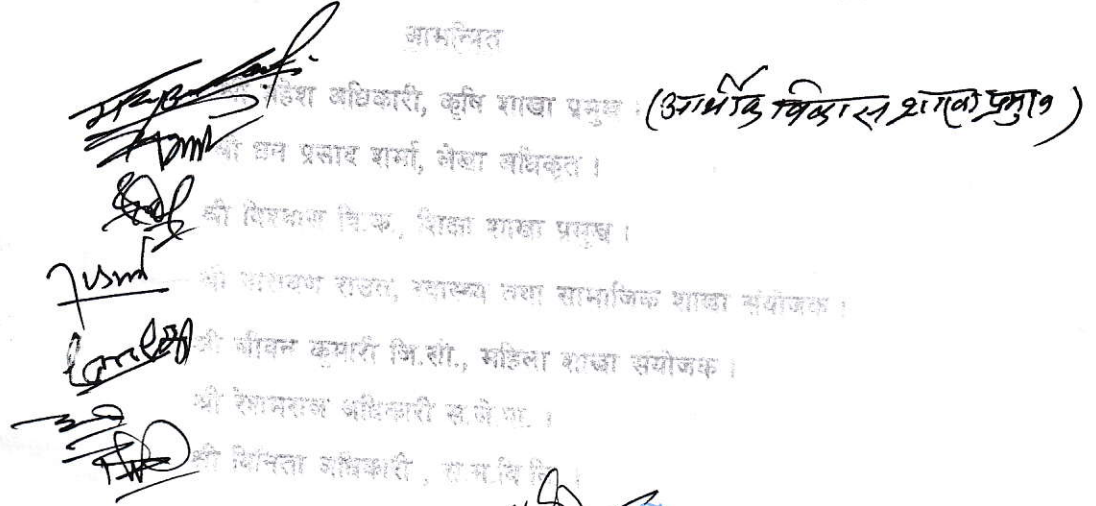 आमन्त्रित
श्री महेश अधिकारी, कृषि शाखा प्रमुख । (आर्थीक विकास शाखा प्रमुख)
श्री धन प्रसाद शर्मा, लेखा अधिकृत ।
श्री वि.क., शिक्षा शाखा प्रमुख ।
श्री नारायण राउत, स्वास्थ्य तथा सामाजिक शाखा संयोजक ।
श्री जीवन कुमारी जि.सी., महिला शाखा संयोजक ।
श्री रेशमराज अधिकारी स.ले.पा. ।
श्री विनिता अधिकारी , स.म.वि.नि. ।